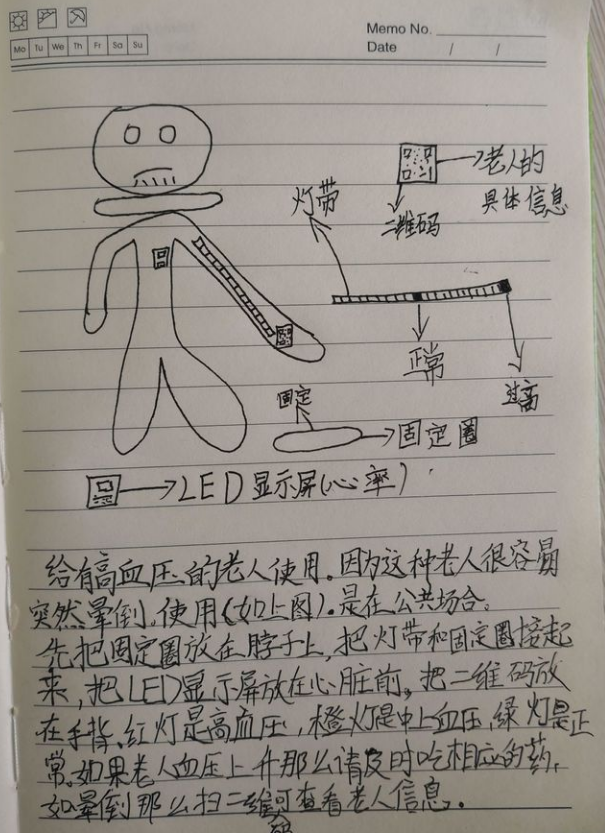 Memo No.
Mo Tu We Th Fr Sa Su
Date / /
老人的
具体信息
灯带
二维码
正常
过高
固定
固定圈
LED显示屏(心率)
给有高血压的老人使用。因为这种老人很容易
突然晕倒。使用(如上图)。是在公共场合。
先把固定圈放在脖子上,把灯带和固定圈接起
来,把LED显示屏放在心脏前。把二维码放
在手背。红灯是高血压,橙灯是中上血压,绿灯是正
常。如果老人血压上升那么请及时吃相应的药,
如晕倒那么扫二维码可查看老人信息。